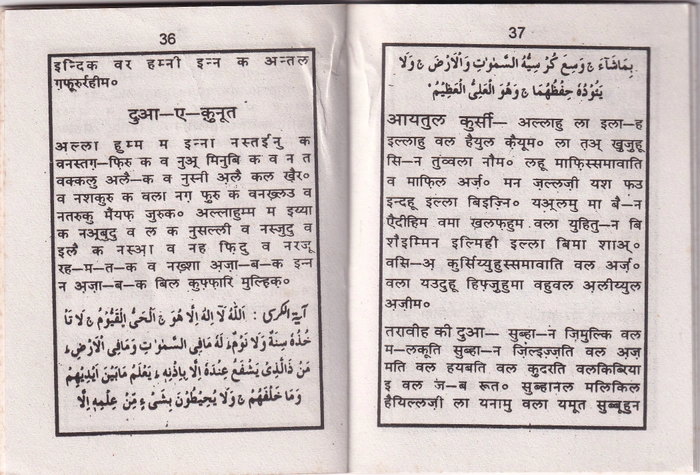 36
इन्दिक वर हम्नी इन्न क अन्तल
ग़फ़ूरुर्रहीम०
दुआ—ए—क़ुनूत
अल्ला हुम्म म इन्ना नस्तईनु क
वनस्तग़—फ़िरु क व नुअ् मिनुबि क व न त
वक्कलु अलै—क व नुस्नी अ़लै कल ख़ैर०
व नशकुरु क वला नग़ फ़ुरु क वनख़्लउ व
नतरुकु मैंयफ़ जुरुक० अल्लाहुम्म म इय्या
क नअ़्बुदु व ल क नुसल्ली व नस्जुदु व
इलै क नस्अ़ा व नह फ़िदु व नरजू
रह—म—त—क व नख़्शा अज़ा—ब—क इन्न
न अज़ा—ब—क बिल कुफ़्फ़ारि मुल्हिक़०
آیۃ الکرسی : اَللّٰهُ لَآ اِلٰهَ اِلَّا هُوَ ج اَلْحَیُّ الْقَیُّوْمُ ج لَا تَاْ
خُذُهٗ سِنَةٌ وَّلَا نَوْمٌ ؕ لَهٗ مَا فِی السَّمٰوٰتِ وَمَا فِی الْاَرْضِ ؕ
مَنْ ذَا الَّذِیْ یَشْفَعُ عِنْدَهٗ اِلَّا بِاِذْنِهٖ ؕ یَعْلَمُ مَا بَیْنَ اَیْدِیْهِمْ
وَمَا خَلْفَهُمْ ج وَلَا یُحِیْطُوْنَ بِشَیْءٍ مِّنْ عِلْمِهٖٓ اِلَّا
37
بِمَا شَآءَ ج وَسِعَ كُرْسِیُّهُ السَّمٰوٰتِ وَالْاَرْضَ ج وَلَا
یَئُوْدُهٗ حِفْظُهُمَا ج وَهُوَ الْعَلِیُّ الْعَظِیْمُ
आयतुल कुर्सी— अल्लाहु ला इला—ह
इल्लाहु वल हैयुल क़ैयूम० ला तअ् खुज़ुहू
सि—न तुंव्वला नौम० लहू माफ़िस्समावाति
व माफ़िल अर्ज़० मन ज़ल्लज़ी यश फउ
इन्दहू इल्ला बिइज़्नि० यअ़लमु मा बै—न
ऐदीहिम वमा ख़लफ़हुम वला युहितु—न बि
शैइम्मिन इल्मिही इल्ला बिमा शाअ्०
वसि—अ़ कुर्सिय्युहुस्समावाति वल अर्ज़०
वला यउदुहू हिफ़्ज़ुहुमा वहुवल अ़लीय्युल
अ़ज़ीम०
तरावीह की दुआ— सुब्हा—न ज़िमुल्कि वल
म—लकूति सुब्हा—न ज़िल्इज़्ज़ति वल अ़ज़
मति वल हयबति वल कुदरति वलकिब्रिया
इ वल ज—ब रूत० सुब्हानल मलिकिल
हैयिल्लज़ी ला यनामु वला यमूत सुब्बूहुन